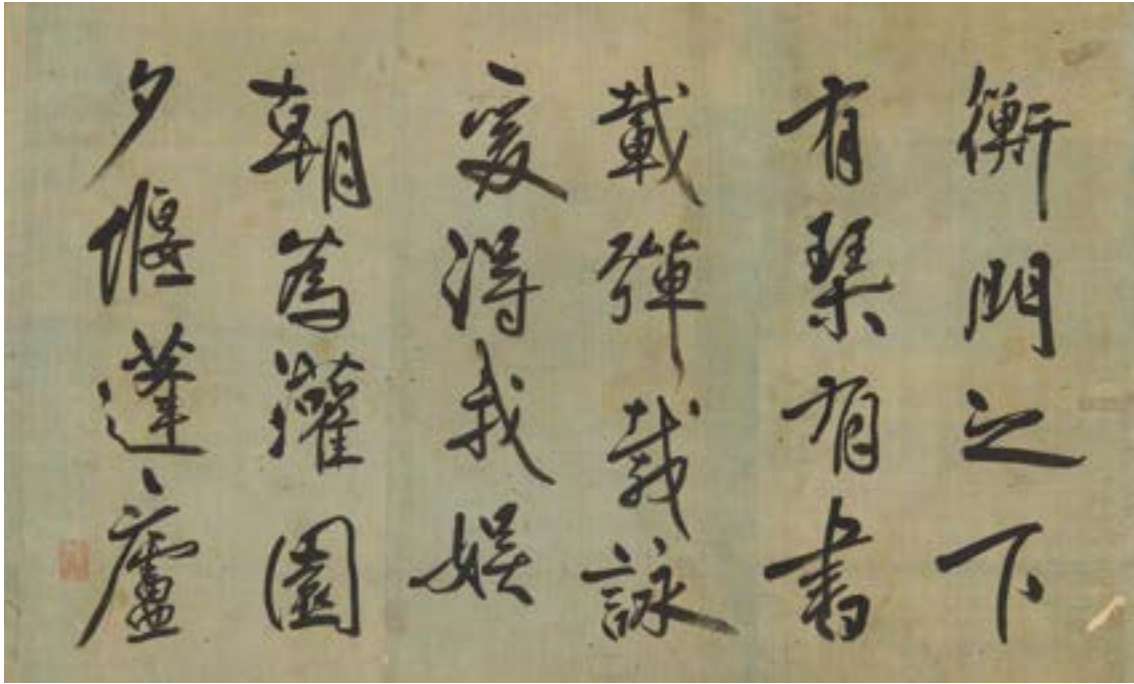 衡門之下
有琹有書
載彈載詠
爰得我娱
朝為灌園
夕偃蓬廬